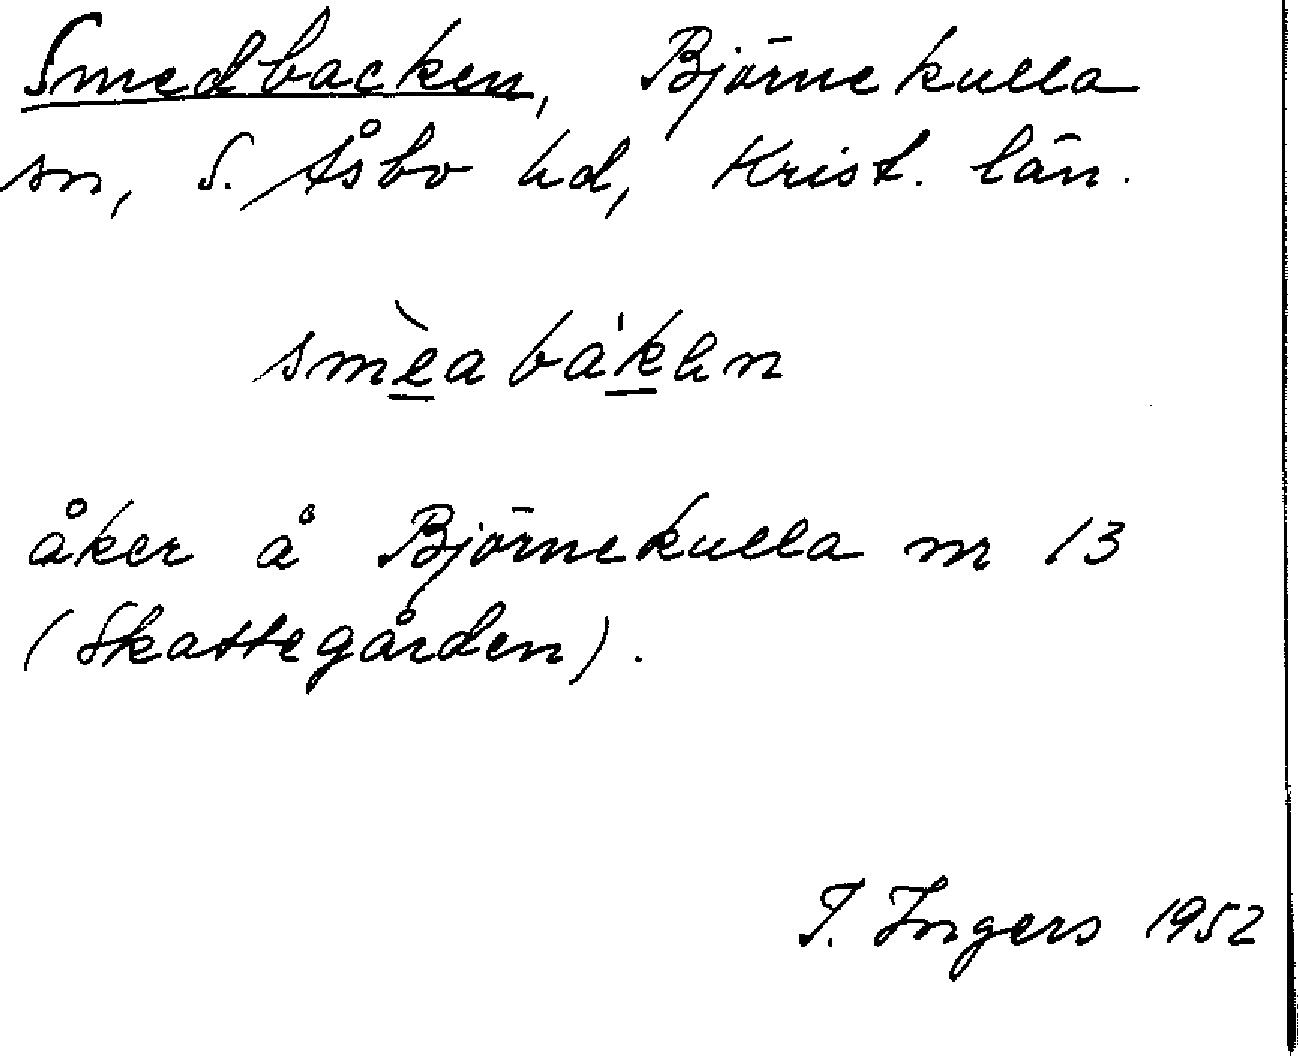 Smedbacken, Björnekulla
sn, S. Åsbo hd, Krist. län.
smèabákan
åker å Björnekulla nr 13
(Skattegården).
I. Ingers 1952